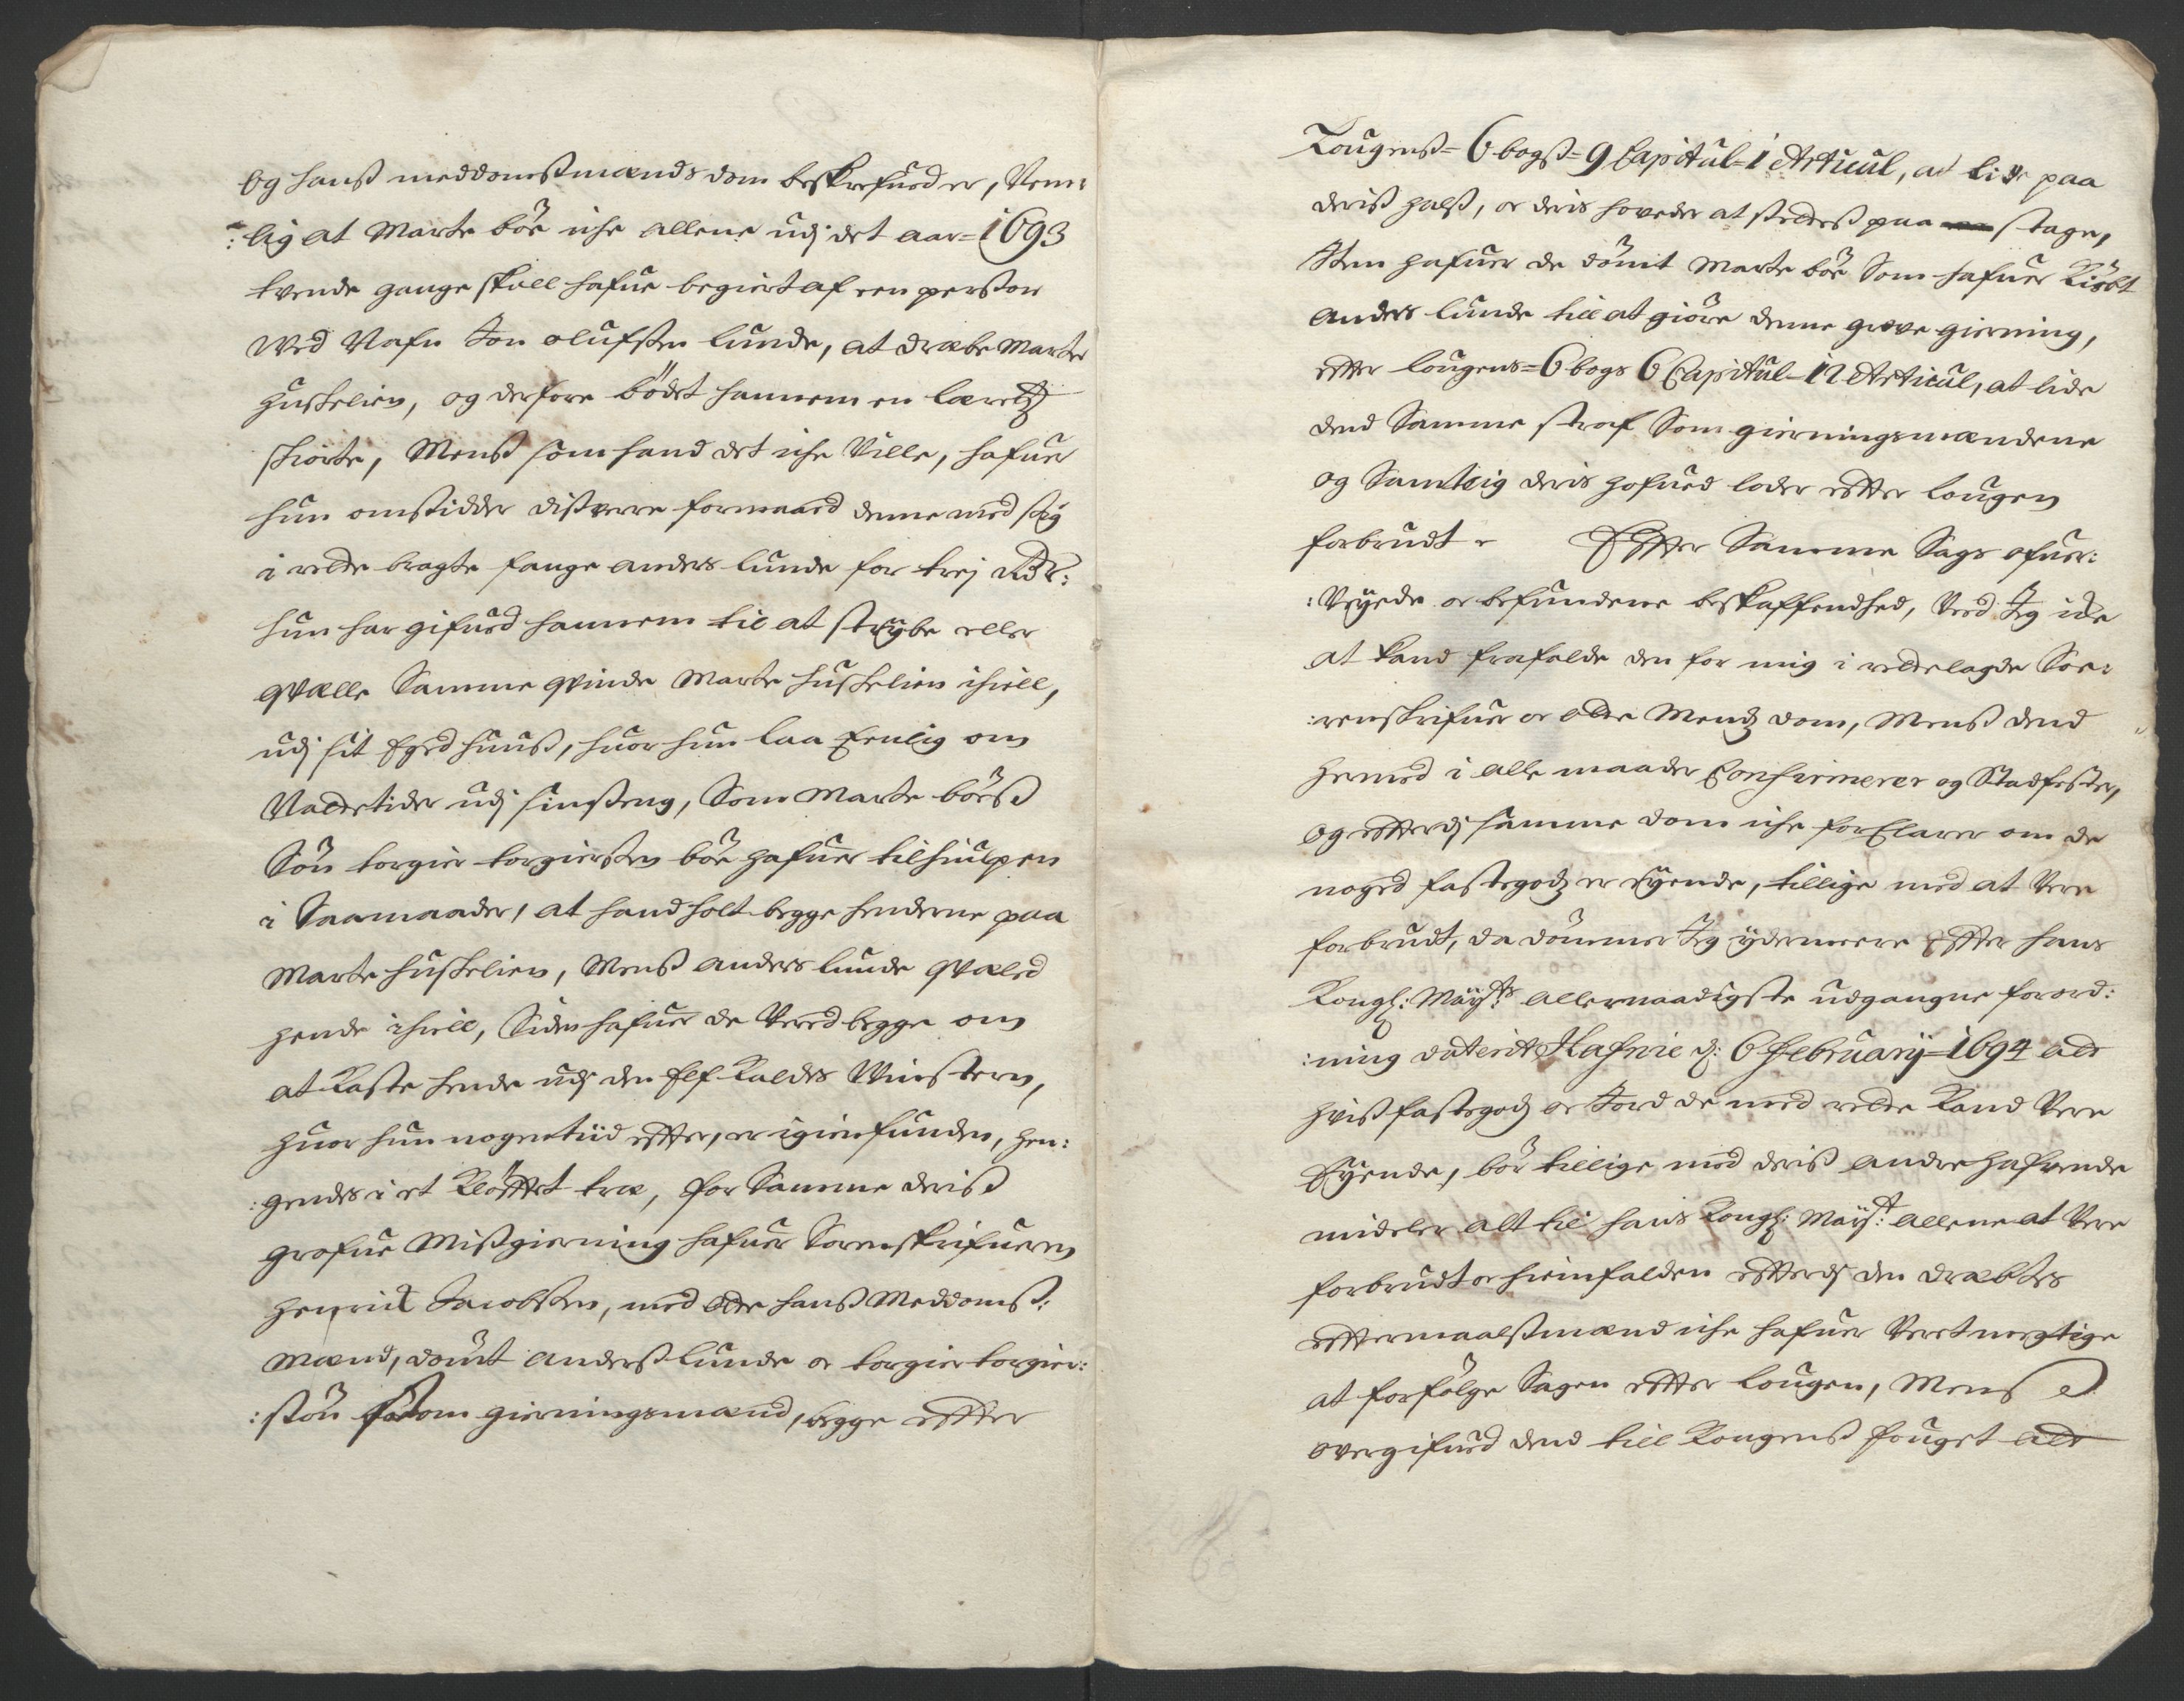 og hanß meddomßmænds dom beskrefued er, Nem:
:lig at Marte böe iche allene udj det aar= 1693
tvende gange skall hafue begiert af een person
wed Nafn Jon olufsen lunde, at dræbe Marte
huskelien, og derfore bödet hannem en lærets
skiorte, Menß som hand det iche Ville, hafuer
hun omsidder disverre formaaed denne med sig
i rette bragte fange anders lunde for trej Rdr:
hun har gifued hannem til at strybe eller
qvælle Samme qvinde Marte huskelien ihiell,
udj sit Eget huuß, huor hun laa Eenlig om
Nattetider udj sin seng, Som Marte böes
Sön torgier torgiersen böe hafuer tilhiulpen
i Saamaader, at hand holt begge henderne paa
Marte huskelien, Menß anders lunde qvaled
hende ihiell, Siden hafuer de Vered begge om
at Kaste hende udj den Elf Kaldes Winstern,
huor hun nogen tiid efter, er igienfunden, hen:
:gendes i et Klöfftet træ, for Samme deris
grofue Mißgierning hafuer Sorenskrifueren
Henrick Jacobsen, med otte hanß Meddomß:
mænd, dömt anderß lunde oc torgier torgier:
:sön som gierningsmænd, begge effter
Lougenß= 6 bogß= 9 Capitul= 1 Articul, at lide paa
deriß halß, oc deris hoveder at settes paa stage,
Item hafuer de dömt Marte böe Som hafuer Kiöbt
anders lunde till at giöre denne grove gierning,
efter lougens= 6 bogs 6 Capitul= 12 Articul, at lide
dend Samme straf Som gierningsmændene
og Samtlig deris hofued loder efter lougen
forbrudt Effter Samme Sags ofuer:
:Veyede oc befundene beskaffendhed, Veed Jeg icke
at kand frafalde den for mig i rettelagde Soe:
:renskrifuer oc otte Mends dom, Menß dend
hermed i alle maader Confirmerer og Stadfester,
og efterdj samme dom iche forklarer om de
noged fastegods er Eyende, tillige med at Vere
forbrudt, da dömmer Jeg ydermeere Effter hans
Kongl: Mayts: allernaadigste udgangne forord:
:ning daterit Hafnie d: 6 February= 1694 alt
hviß fastegods oc Jord de med rette Kand Vere
Eyende, bör tillige med deriß andre hafvende
mideler alt til hans Kongl: Mayst: allene at Vere
forbrudt oc hiemfalden efterdj den dræbtes
eftermaalßmænd iche hafuer Veret megtige
at forfölge Sagen effter lougen, Mens
overgifued dend till Kongenß fouget alt